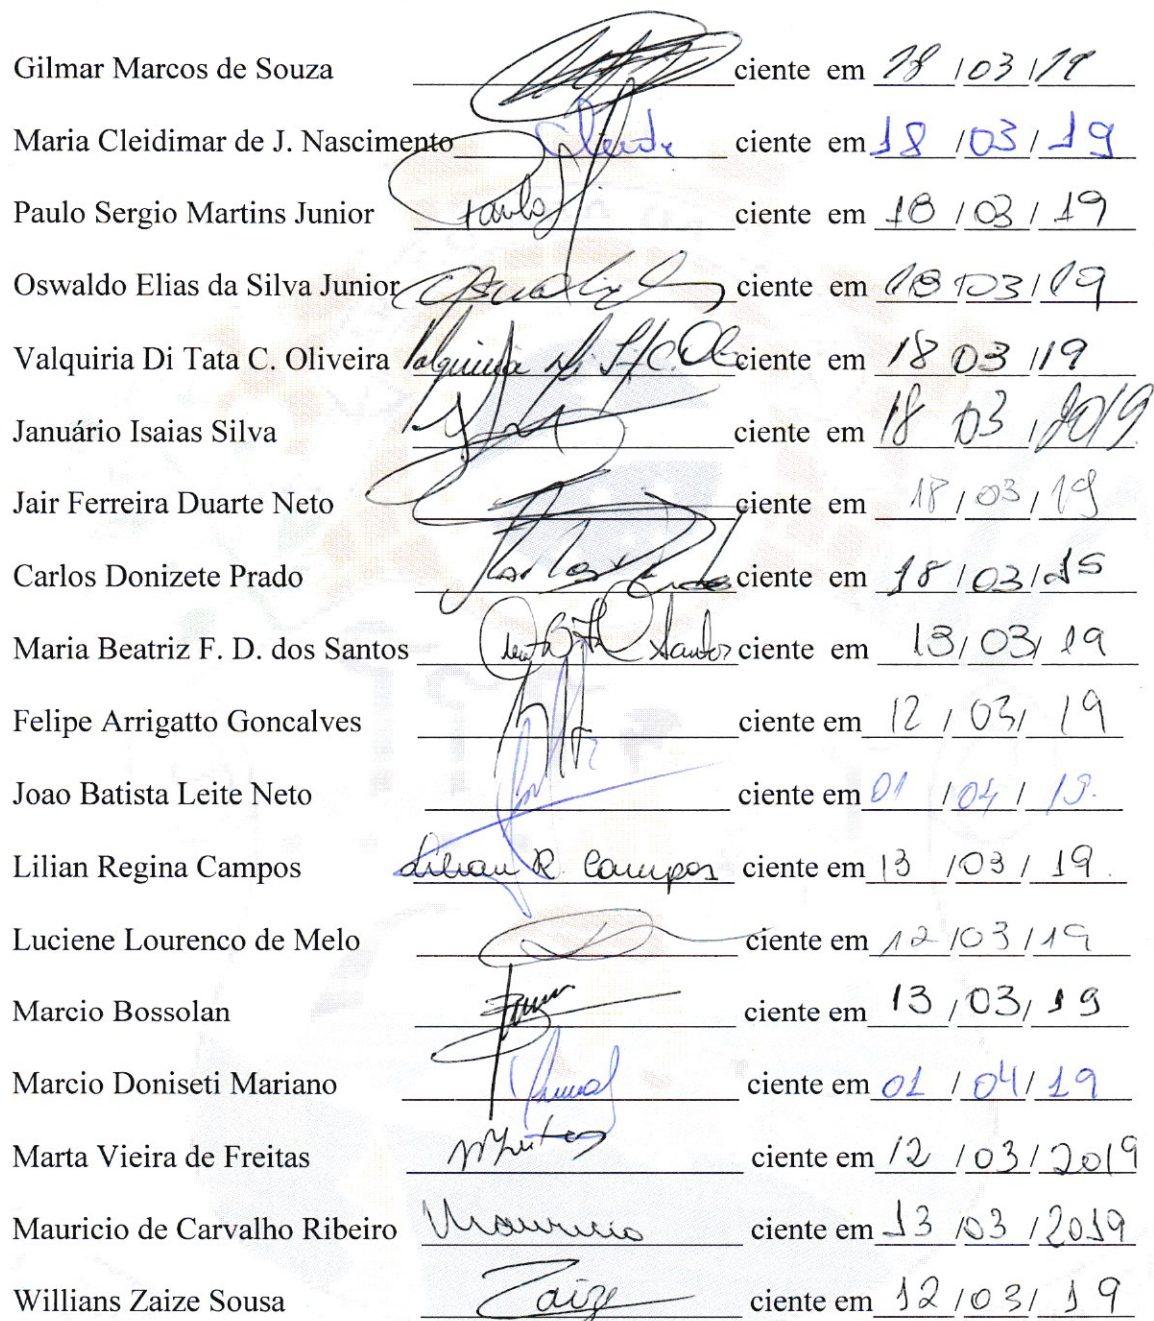 Gilmar Marcos de Souza ciente em 18/03/19
Maria Cleidimar de J. Nascimento ciente em 18/03/19
Paulo Sergio Martins Junior Paulo ciente em 18/03/19
Oswaldo Elias da Silva Junior ciente em 18/03/19
Valquiria Di Tata C. Oliveira Valquiria Di ciente em 18 03/19
Januário Isaias Silva ciente em 18 03/2019
Jair Ferreira Duarte Neto ciente em 18/03/19
Carlos Donizete Prado Carlos ciente em 18/03/
Maria Beatriz F. D. dos Santos Santos ciente em 13/03/19
Felipe Arrigatto Goncalves ciente em 12/03/19
Joao Batista Leite Neto ciente em 01/04/19.
Lilian Regina Campos Lilian R. Campos ciente em 13/03/19.
Luciene Lourenco de Melo ciente em 12/03/19
Marcio Bossolan ciente em 13/03/19
Marcio Doniseti Mariano ciente em 01/04/19
Marta Vieira de Freitas ciente em 12/03/2019
Mauricio de Carvalho Ribeiro Mauricio ciente em 13/03/2019
Willians Zaize Sousa Zaize ciente em 12/03/19